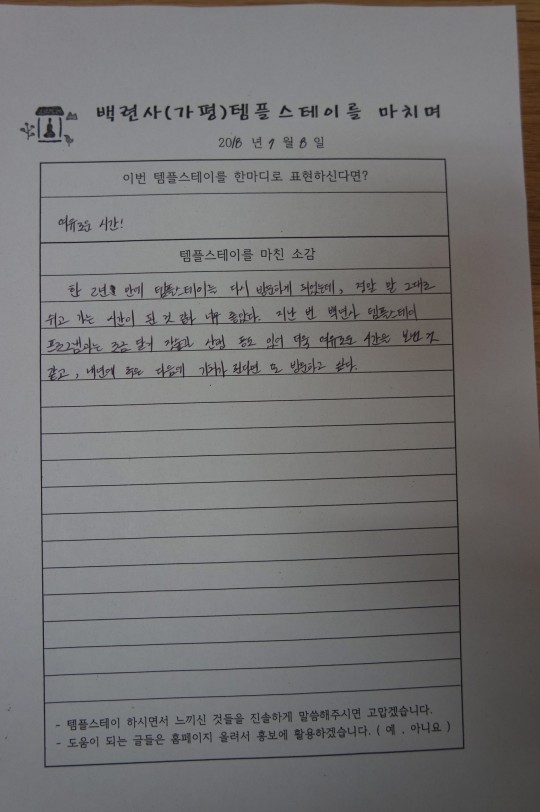 백련사(가평)템플스테이를 마치며
2018 년 9 월 8 일
이번 템플스테이를 한마디로 표현하신다면?
여유로운 시간!
템플스테이를 마친 소감
한 2년 만에 템플스테이를 다시 방문하게 되었는데, 정말 말 그대로
쉬고 가는 시간이 된 것 같아 너무 좋았다. 지난 번 백련사 템플스테이
프로그램과는 조금 달리 산행 등도 있어 더욱 여유로운 시간을 보낸 것
같고, 내년에 또는 다음에 기회가 된다면 또 방문하고 싶다.
- 템플스테이 하시면서 느끼신 것들을 진솔하게 말씀해주시면 고맙겠습니다.
- 도움이 되는 글들은 홈페이지 올려서 홍보에 활용하겠습니다. ( 예 , 아니요 )